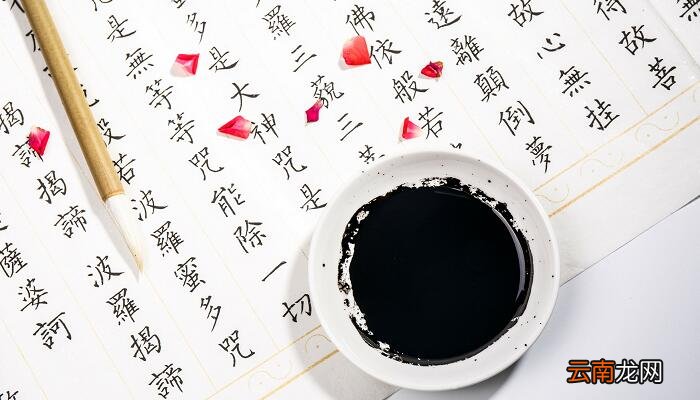 得故菩
故心無挂
遠離顛倒夢
佛依般若
羅三藐三
多是大神咒是
是無等等咒能除一切
般若波羅蜜多咒
揭諦揭諦波羅揭諦
薩婆訶
云南龙网